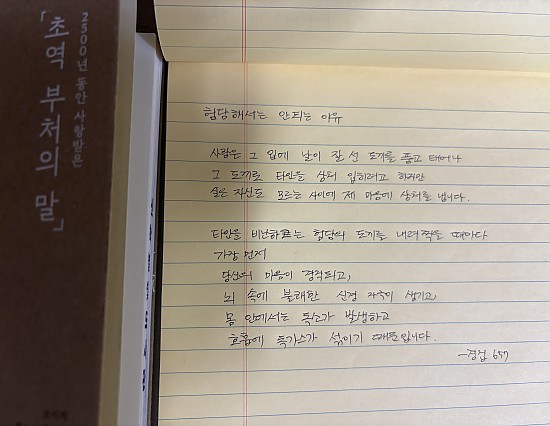 2500년 동안 사랑받은
「초역 부처의 말」
험담해서는 안되는 이유
사람은 그 입에 날이 잘 선 도끼를 품고 태어나
그 도끼로 타인을 상처 입히려고 하지만
실은 자신도 모르는 사이에 제 마음에 상처를 냅니다.
타인을 비난하고는 험담의 도끼를 내려찍을 때마다
가장 먼저
당신의 마음이 경직되고,
뇌 속에 불쾌한 신경 자극이 생기고,
몸 안에서는 독소가 발생하고
호흡에 독가스가 섞이기 때문입니다.
-경집 657